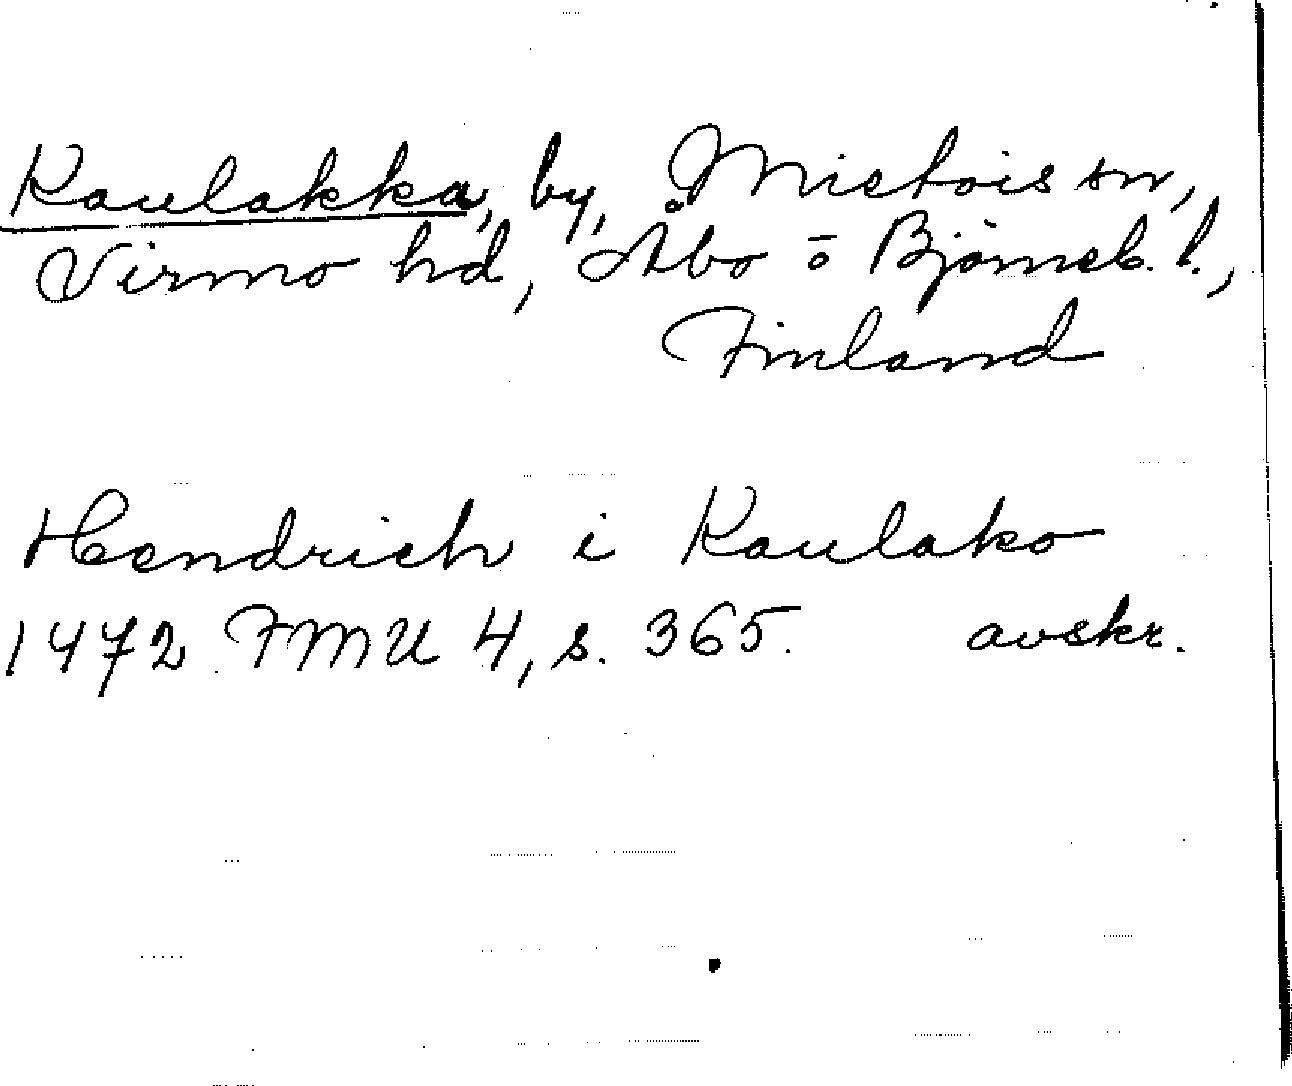 Kaulakka, by, Mietois sn,
Virmo hd, Åbo o Björneb. l.,
Finland
Hendrich i Kaulako
1472 FMU 4, s. 365. avskr.